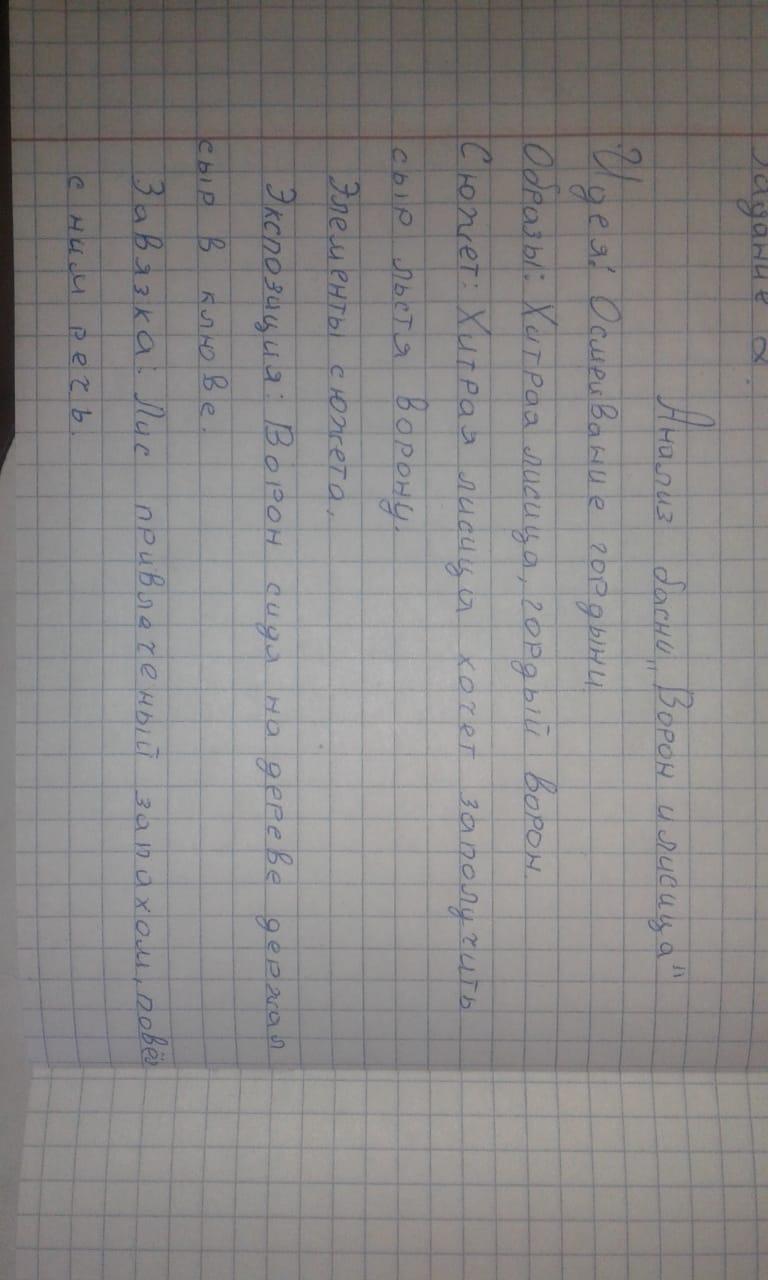 Задание 2.
Анализ басни „Ворон и лисица"
Идея: Осмеивание гордыни.
Образы: Хитрая лисица, гордый ворон.
Сюжет: Хитрая лисица хочет заполучить
сыр льстя ворону.
Элементы сюжета,
Экспозиция: Ворон сидя на дереве держал
сыр в клюве.
Завязка: Лис привлаченый запахом, повёл
с ним речь.